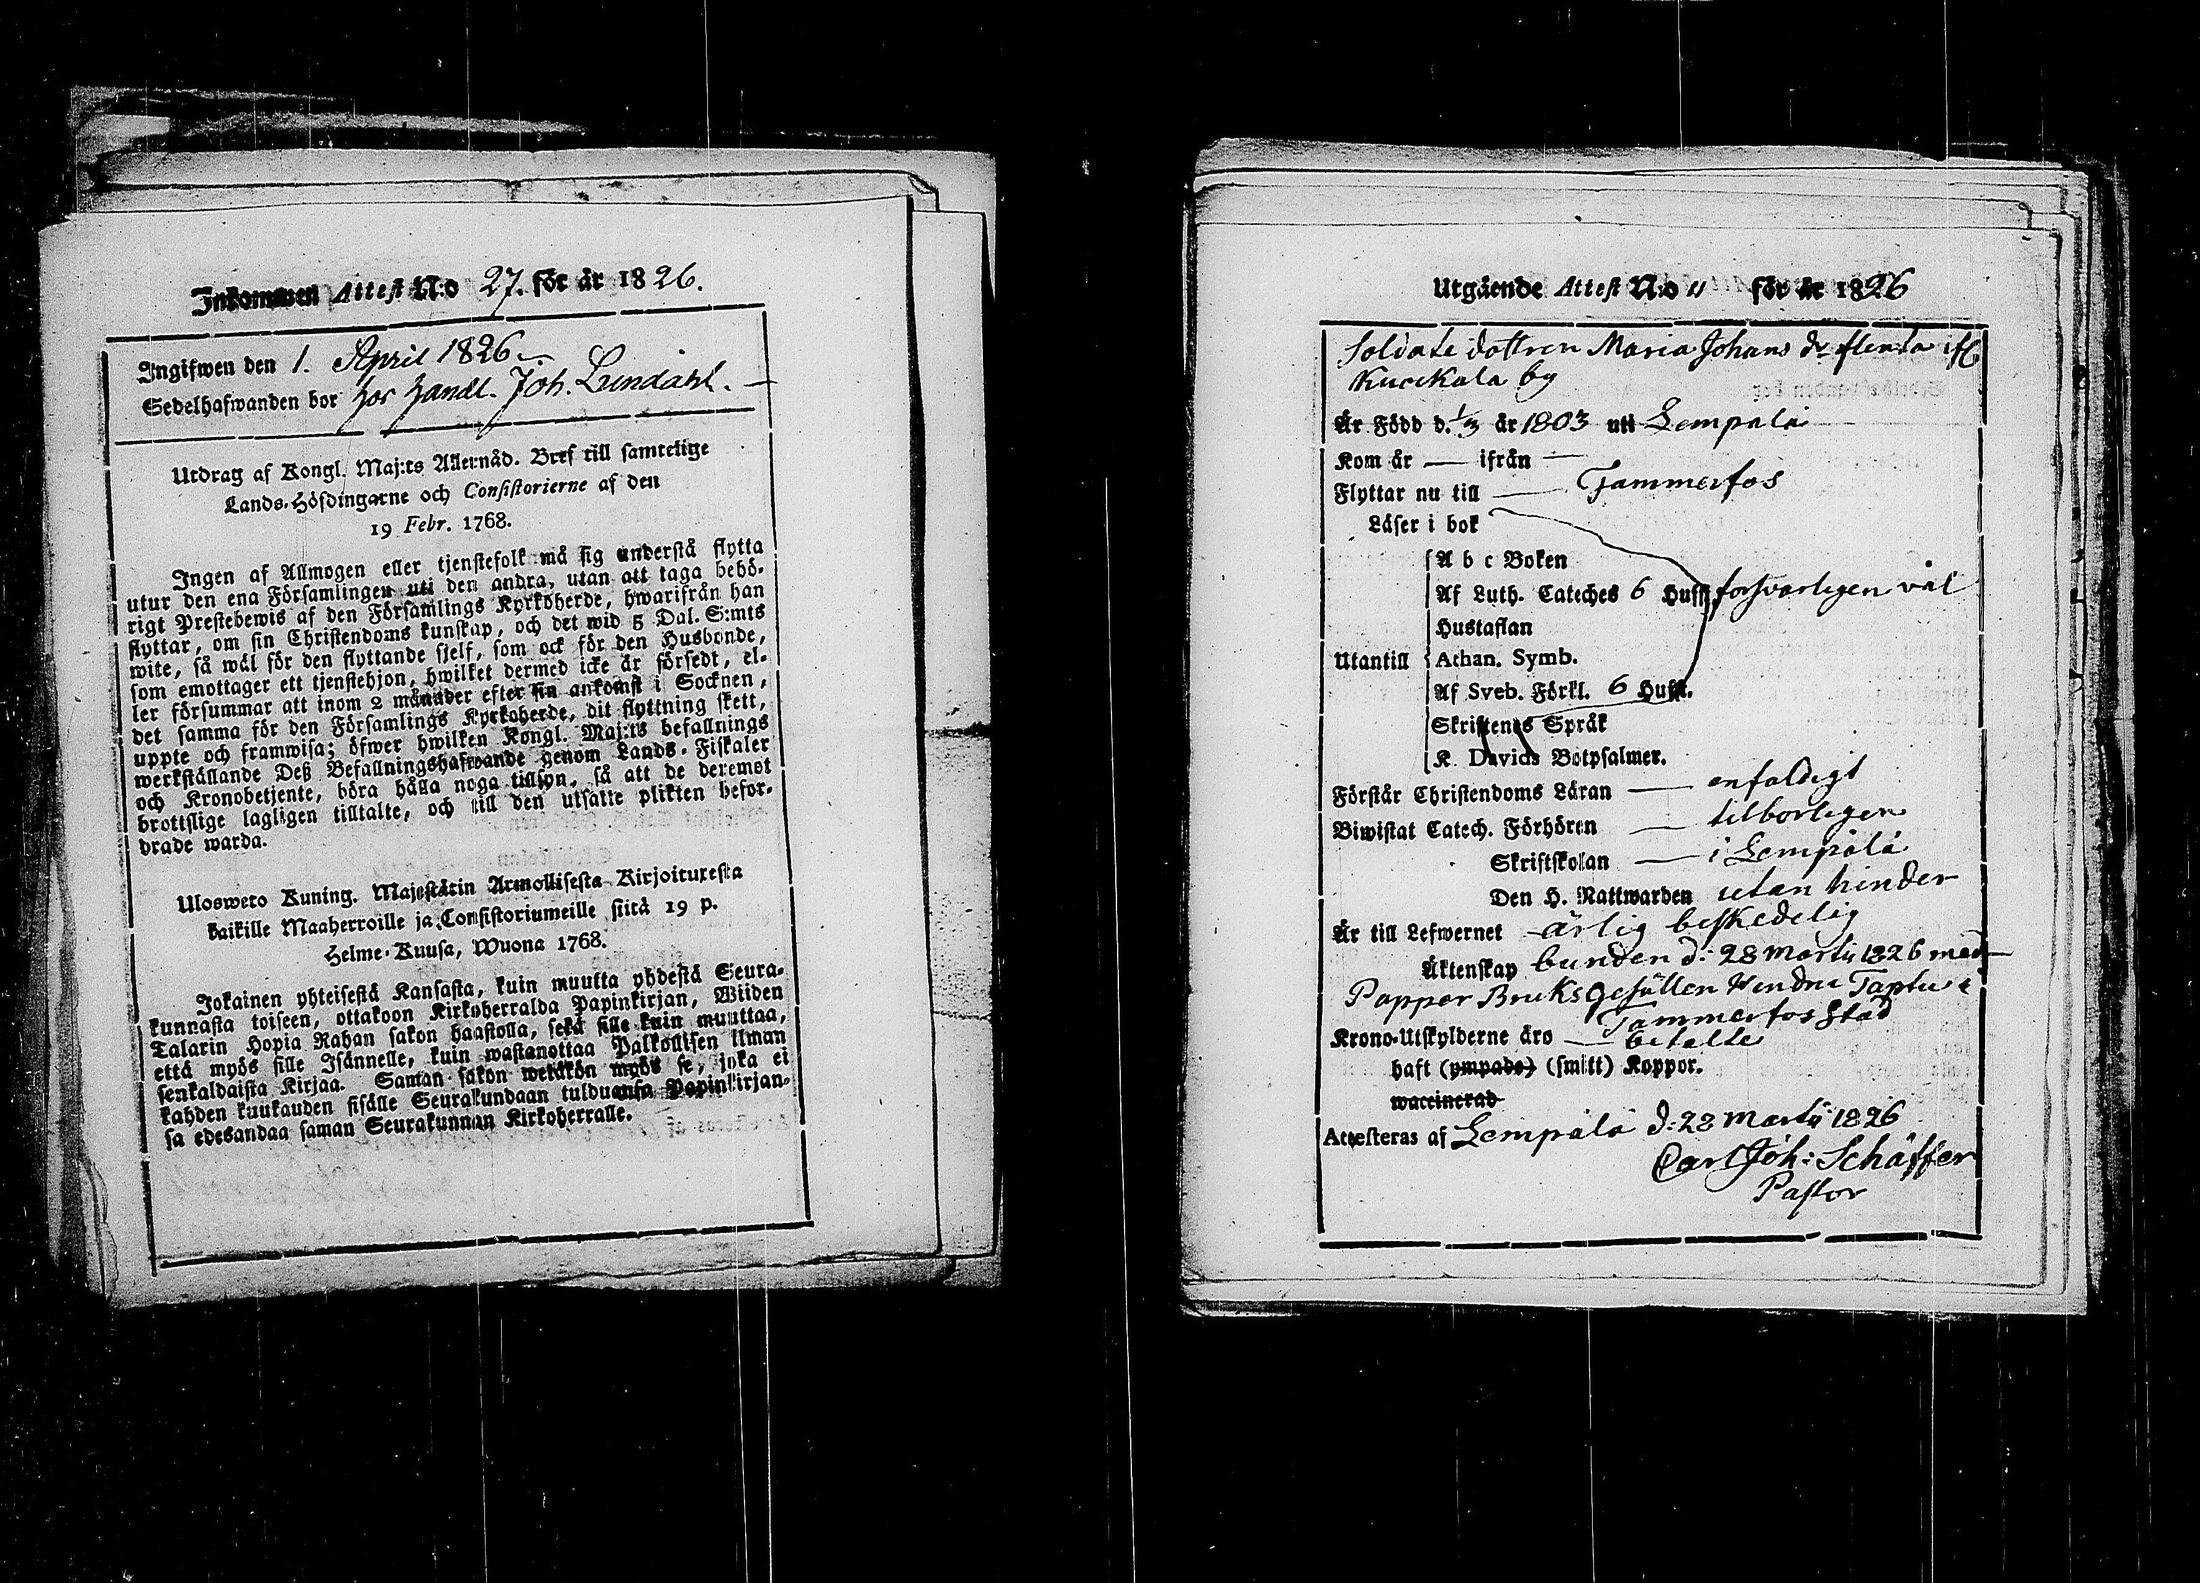 Inkommen Attest N:o 27. för år 1826.
Ingifwen den 1. April 1826.
Sedelhafwanden bor hos Handl. Joh. Lundahl.
Utdrag af Kongl. Maj:ts Allernåd. Bref till samtelige
Lands-Höfdingarne och Consistorierne af den
19 Febr. 1768.
Ingen af Allmogen eller tjenstefolk må sig understå flytta
utur den ena Församlingen uti den andra, utan att taga behö-
rigt Prestebewis af den Församlings Kyrkoherde, hwarifrån han
flyttar, om sin Christendoms kunskap, och det wid 5 Dal. S:mts
wite, så wäl för den flyttande sjelf, som ock för den Husbonde,
som emottager ett tjenstehjon, hwilket dermed icke är försedt, el-
ler försummar att inom 2 månader efter sin ankomst i Socknen,
det samma för den Församlings Kyrkoherde, dit flyttning skett,
uppte och framwisa; öfwer hwilken Kongl. Maj:ts befallnings
werkställande Deß Befallningshafwande genom Lands-Fiskaler
och Kronobetjente, böra hålla noga tillsyn, så att de deremot
brottslige lagligen tilltalte, och till den utsatte plikten befor-
drade warda.
Ulosweto Kuning. Majestätin Armollisesta Kirjoituxesta
kaikille Maaherroille ja Consistoriumeille siitä 19 p.
Helme-Kuusa, Wuona 1768.
Jokainen yhteisestä Kansasta, kuin muutta yhdestä Seura-
kunnasta toiseen, ottakoon Kirkoherralda Papinkirjan, Wiiden
Talarin Hopia Rahan sakon haastolla, sekä sille kuin muuttaa,
että myös sille Isännelle, kuin wastanottaa Palkollisen ilman
senkaldaista Kirjaa. Saman sakon wetäkön myös se, joka ei
kahden kuukauden sisälle Seurakundaan tulduansa Papinkirjan-
sa edesandaa saman Seurakunnan Kirkoherralle.
Utgående Attest N:o 11 för år 1826
Soldate dottren Maria Johans dr
Kuckala by
Är Född d. 1/3 år 1803 uti Lempälä
Kom år — ifrån —
Flyttar nu till — Tammerfos
Läser i bok
A b c Boken
Af Luth. Cateches 6 Hufst. forsvarligen väl
Hustaflan
Utantill Athan. Symb.
Af Sveb. Förkl. 6 Hufst.
Skriftenes Språk
K. Davids Botpsalmer.
Förstår Christendoms Läran — enfaldigt
Biwistat Catech. Förhören — tilborligen
Skriftskolan — i Lempälä
Den H. Nattwarden utan hinder
Är till Lefwernet ärlig beskedelig
Äktenskap bunden d: 28 Martii 1826 med
Papper Bruks Gesällen Hendric Taptu i
Tammerfos Stad
Krono-Utskylderne äro — betalte
haft (ympade) (smitt) Koppor.
waccinerad
Attesteras af Lempälä d: 28 Martii 1826
Carl Joh: Schäffer
Pastor